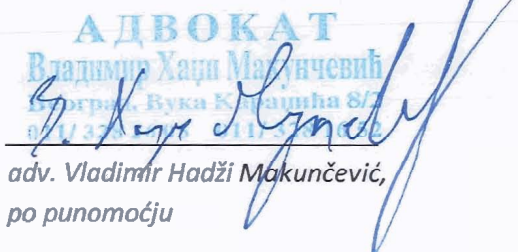 АДВОКАТ
Владимир Хаџи Макунчевић
Београд, Вука Караџића 8/2
adv. Vladimir Hadži Makunčević,
po punomoćju